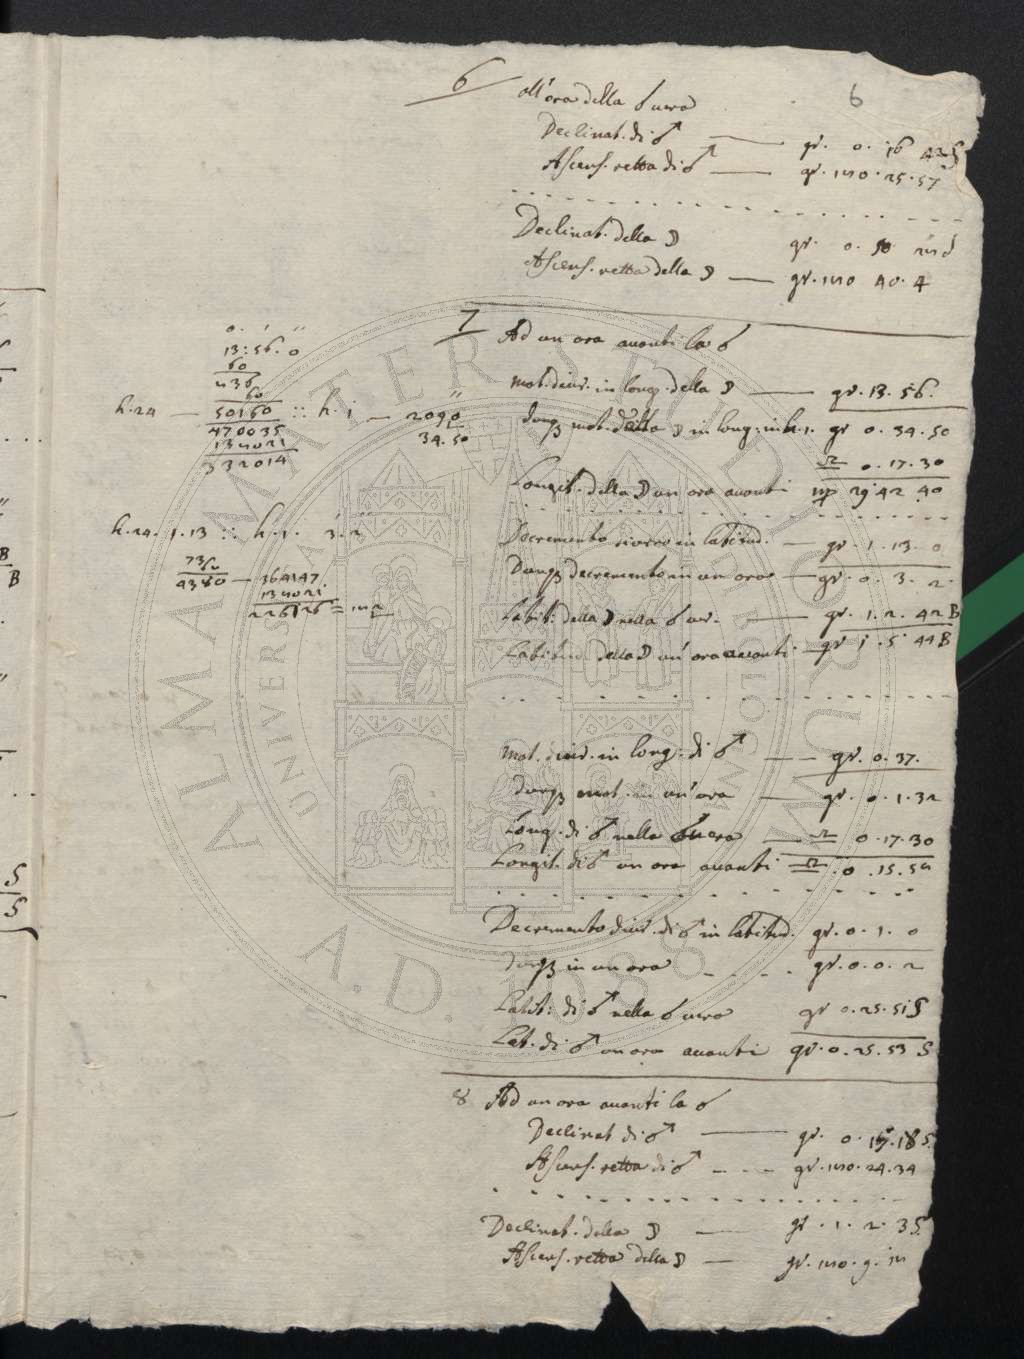 6
6 all'ora della ☌ vera
Declinat. di ♂ — gr. 0. 16 43 S
Ascens. retta di ♂ — gr. 180. 25. 57
Declinat. della ☽ gr. 0. 50
Ascens. retta della ☽ — gr. 180 40. 4
7 Ad un ora avanti la ☌
mot. diur. in long. della ☽ — gr. 13. 56.
dunq mot. della ☽ in long: in h. 1. gr 0. 34. 50
♎ 0. 17. 30
Longit. della ☽ un ora avanti ♍ 29 42 40
Decremento diurno in latitud. — gr. 1. 13. 0
Dunq decremento in un ora — gr. 0. 3. 2
Latit: della ☽ nella ☌ ver. — gr. 1. 2. 42 B
Latitud della ☽ un' ora avanti — gr 1. 5 44 B
Mot. diur. in long. di ♂ — gr. 0. 37.
Dunq mot. in un' ora — gr. 0. 1. 32
Long. di ♂ nella ☌ vera — ♎ 0. 17. 30
Longit. di ♂ un ora avanti ♎ 0. 15. 58
Decremento diur. di ♂ in latitud. gr. 0. 1. 0
dunq in un ora gr. 0. 0. 2
Latit: di ♂ nella ☌ vera gr 0. 25. 51 S
Lat. di ♂ un ora avanti gr. 0. 25. 53 S
8 Ad un ora avanti la ☌
Declinat di ♂ — gr. 0. 15. 18 S.
Ascens. retta di ♂ — gr. 180. 24. 34
Declinat. della ☽ — gr. 1. 2. 35
Ascens. retta della ☽ — gr. 180. 9.
13: 56. 0
60
836
60
h. 24 — 50160 :: h. 1 — 2090
34. 50
470035
138021
332014
h. 24. 1. 13 :: h. 1. 3. 2
73/0
4380 — 364147.
138021
226126 = 182
ALMA MATER STUDIORUM
UNIVERSITÀ DI BOLOGNA
A.D. 1088